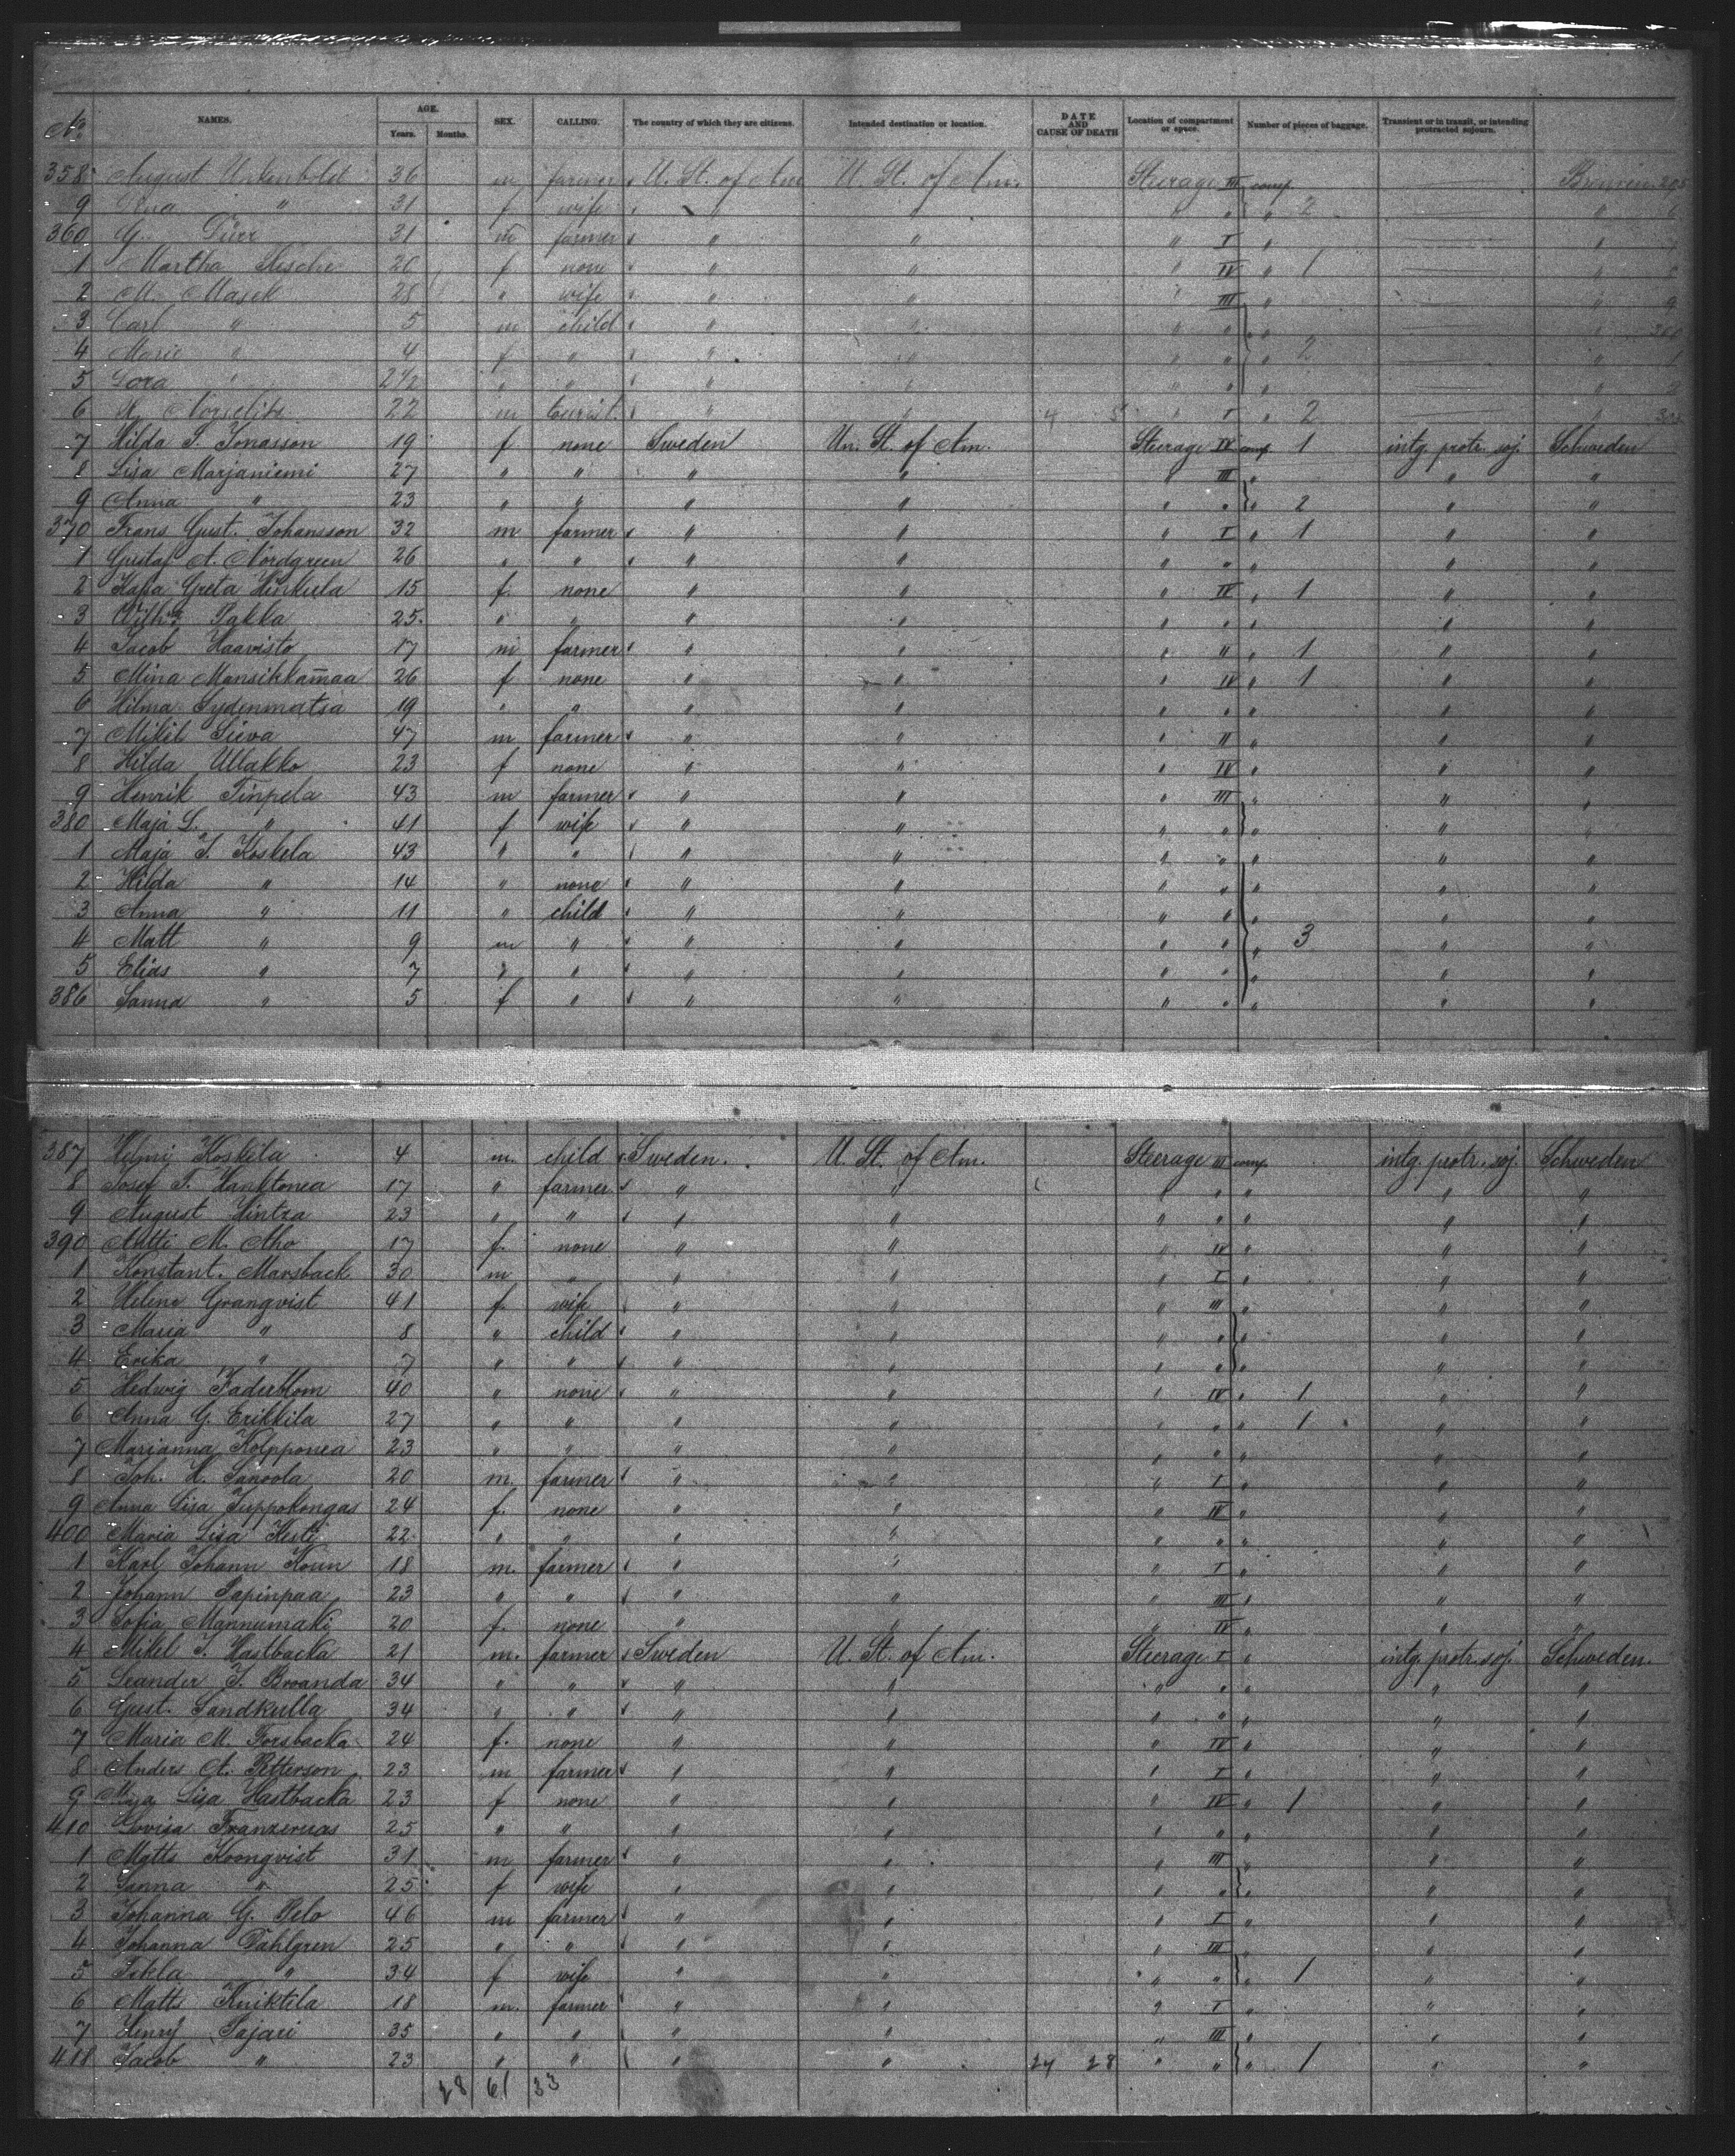 No. NAMES. AGE. Years. Months. SEX. CALLING. The country of which they are citizens. Intended destination or location. DATE AND CAUSE OF DEATH Location of compartment or space. Number of pieces of baggage. Transient or in transit, or intending protracted sojourn.
358 August 36 m farmer U. St. of Am U. St. of Am. Steerage III comp. Bremen 295
9 " 31 f wife " " " " " 2 " 6
360 G. Dürr 31 m farmer " " " I " "
1 Martha 20 f none " " " IV " 1 "
2 M. Masek 28 " wife " " " III " " 9
3 Carl " 5 m child " " " " " " 300
4 Marie " 4 f " " " " " " 2 " 1
5 Dora " 2 1/2 " " " " " " " " 2
6 22 m tourist " " 4 5 " I " 2 "
7 Hilda S. Jonasson 19 f none Sweden Un. St. of Am. Steerage IV comp. 1 intg. protr. soj. Schweden
8 Lisa Marjaniemi 27 " " " " " III " " "
9 Anna " 23 " " " " " " " 2 " "
370 Frans Gust. Johansson 32 m farmer " " " I " 1 " "
1 Gustaf A. Nordgreen 26 " " " " " " " " "
2 Kajsa Greta Hinkula 15 f. none " " " IV " 1 " "
3 Pakka 25. " " " " " " " " "
4 Jacob Haavisto 17 m farmer " " " " " 1 " "
5 Mina Mansikkam̄aa 26 f none " " " IV " 1 " "
6 Hilma Sydenmatsa 19 " " " " " " " " "
7 Mikil Sieva 47 m farmer " " " II " " "
8 Hilda Ullakko 23 f none " " " IV " " "
9 Henrik Tinpela 43 m farmer " " " III " " "
380 Maja L. " 41 f wife " " " " " " "
1 Maja S. Koskela 43 " " " " " " " " "
2 Hilda " 14 " none " " " " " " "
3 Anna " 11 " child " " " " " " "
4 Matt " 9 m " " " " " " 3 " "
5 Elias " 7 " " " " " " " " "
386 Sanna " 5 f " " " " " " " "
387 Helmi Koskela 4 m. child Sweden. U. St. of Am. Steerage III comp. intg. protr. soj. Schweden
8 Josef T. Hanktonea 17 " farmer " " " " " " "
9 August Hintza 23 " " " " " " " " "
390 Antti M. Aho 17 f. none " " " IV " " "
1 Konstant. Marsback 30 m " " " " I " " "
2 Helene Granqvist 41 f. wife " " " III " " "
3 Maria " 8 " child " " " " " " "
4 Erika " 7 " " " " " " " " "
5 Hedwig Faderblom 40 " none " " " IV " 1 " "
6 Anna G. Erikkila 27 " " " " " " " 1 " "
7 Marianna Kolpponea 23 " " " " " " " " "
8 Joh. H. Sanoola 20 m. farmer " " " I " " "
9 Anna Lisa Tuppokengas 24 f. none " " " IV " " "
400 Maria Lisa Hesti 22 " " " " " " " " "
1 Karl Johann Koun 18 m. farmer " " " I " " "
2 Johann Papinpaa 23 " " " " " III " " "
3 Sofia Mannumaki 20 f. none " " " IV " " "
4 Mikel J. Hastbacka 21 m. farmer Sweden U. St. of Am. Steerage I " intg. protr. soj. Schweden.
5 Leander J. Broanda 34 " " " " " " " " "
6 Gust. Sandkulla 34 " " " " " " " " "
7 Maria M. Forsbacka 24 f. none " " " IV " " "
8 Anders A. Petterson 23 m farmer " " " I " " "
9 Maja Lisa Hastbacka 23 f none " " " IV " 1 " "
410 Lovisa 25 " " " " " " " " "
1 Matts Kronqvist 31 m farmer " " " III " " "
2 Sanna " 25 f wife " " " " " " "
3 Johanna G. Pelo 46 m farmer " " " I " " "
4 Johanna Dahlgren 25 " " " " " III " " "
5 Tekla " 34 f wife " " " " " 1 " "
6 Matts Kniktila 18 m. farmer " " " I " " "
7 Henrij Sajari 35 " " " " " III " " "
418 Jacob " 23 " " " " 24 28 " " " 1 " "
28 61 33